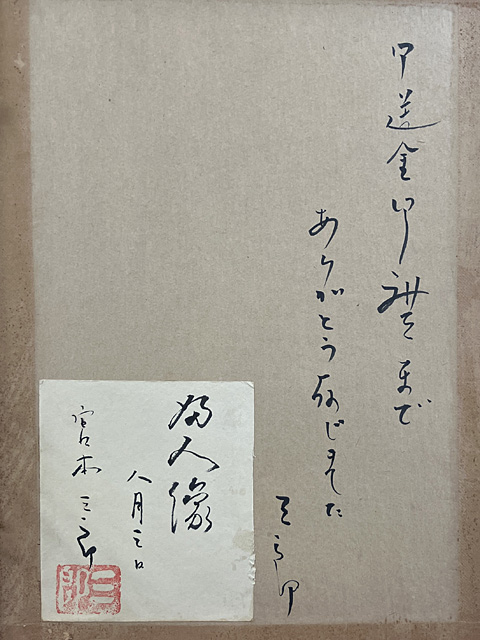 御送金御禮まで
ありがとう存じました
三郎
婦人像
八月三日
宮本三郎
三郎